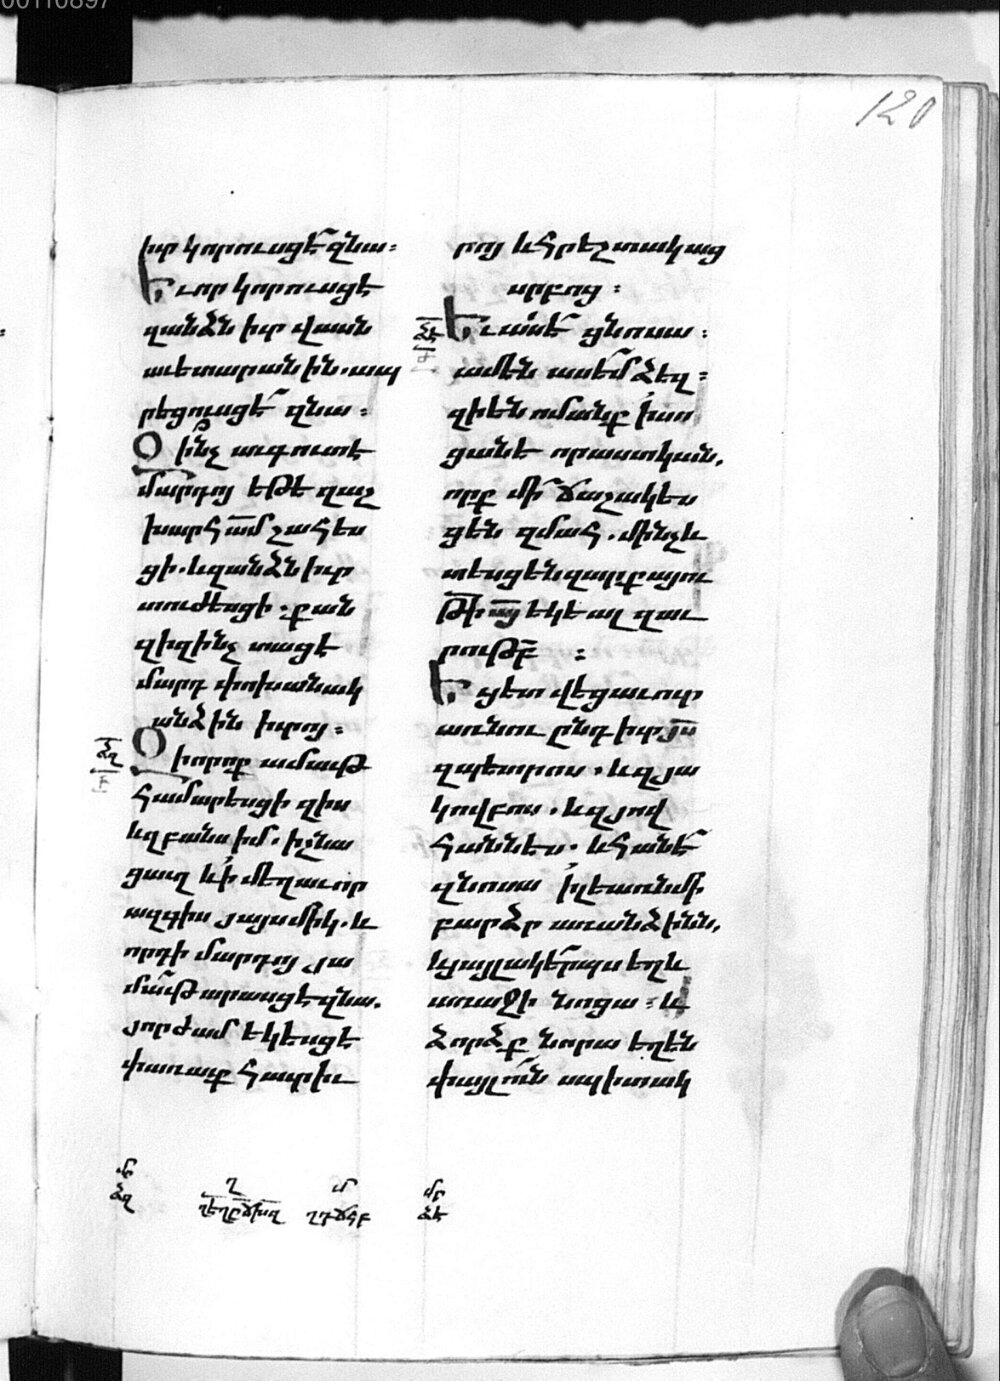 00110897
120
իւր կորուսցէ զնա։
Եւ որ կորուսցէ
զանձն իւր վասն
աւետարանին. ապ
րեցուսցէ զնա։
Օ ինչ աւգուտ է
մարդոյ եթե զաշ
խարհ ամ շահես
ցի. և զանձն իւր
տուժեսցի. քան
զի զինչ տացէ
մարդ փոխանակ
անձին իւրոյ։
Օ ի որ ոք ամաւթ
համարեսցի զիս
և զբանս իմ. ի շնա
ցաւղ և ի մեղաւոր
ազգիս յայսմիկ. և
որդի մարդոյ յա
մաւթ արասցէ զնա.
յորժամ եկեսցէ
փառաւք հաւր իւ
րոյ և հրեշտակաց
սրբոց։
Եւ ասէ ցնոսա։
ամէն ասեմ ձեզ։
զի են ոմանք ի սո
ցանէ որ աստ կան.
որք մի ճաշակես
ցեն զմահ. մինչև
տեսցեն զարքայու
թի այ եկեալ զաւ
րութբ ։
Ե յետ վեց աւուր
առնու ընդ իւր յս
զպետրոս. և զյա
կովբոս. և զյով
հաննես. և հանէ
զնոսա ի լեառն մի
բարձր առանձինն.
և այլակերպս եղև
առաջի նոցա։ և
ձորձք նորա եղեն
փայլուն սպիտակ